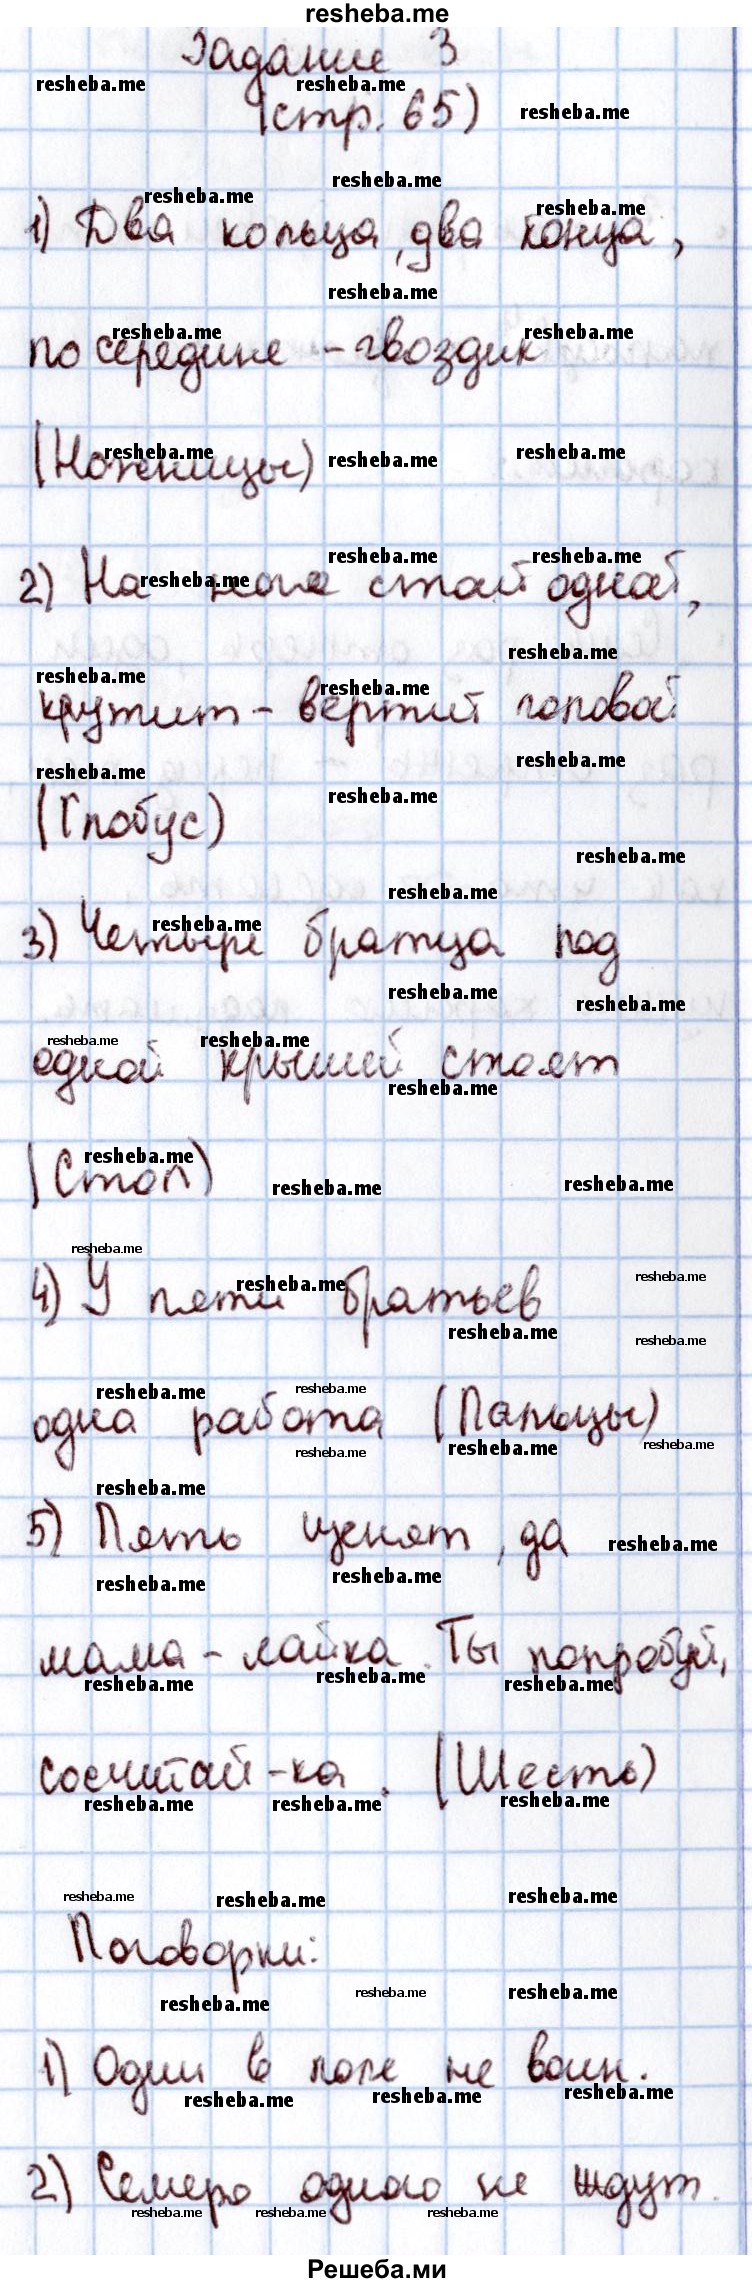 resheba.me
Задание 3
(стр. 65)
1) Два кольца, два конца,
посередине - гвоздик
(Ножницы)
2) На ноге стоит одной,
крутит - вертит головой
(Глобус)
3) Четыре братца под
одной крышей стоят
(Стол)
4) У пяти братьев
одна работа (Пальцы)
5) Пять щенят, да
мама - лайка. Ты попробуй,
сосчитай-ка. (Шесть)
Поговорки:
1) Один в поле не воин.
2) Семеро одного не ждут.
Решеба.ми